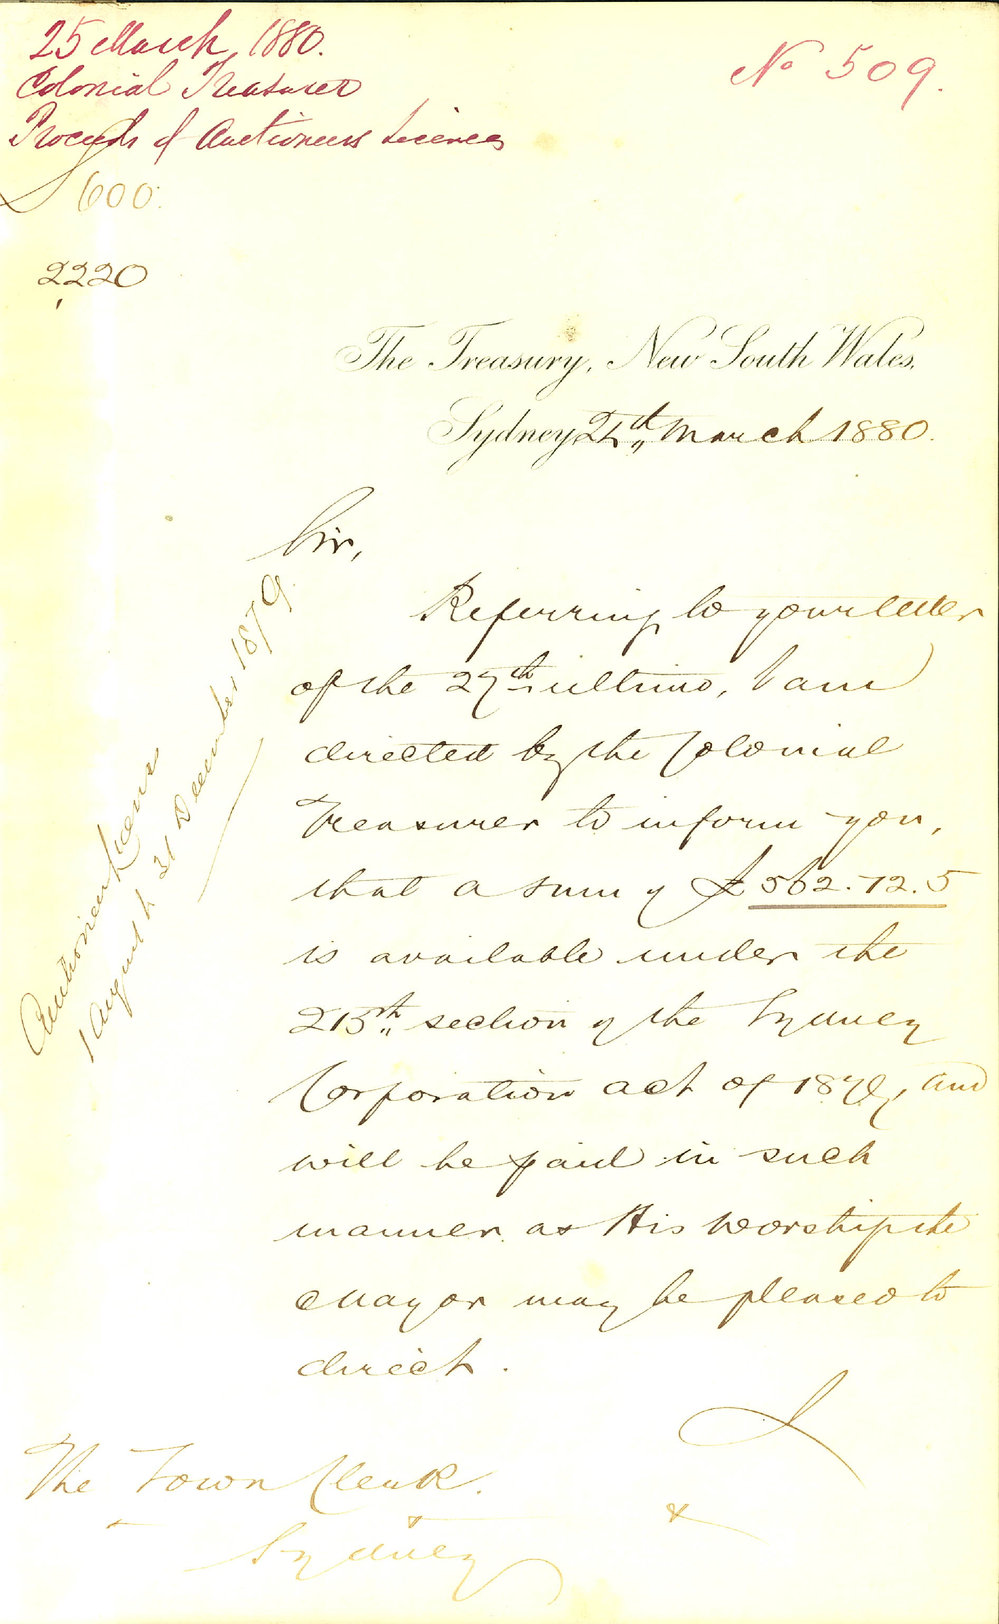 25 March, 1880.
Colonial Treasurer
Proceeds of Auctioneers Licences
No 509.
£ 600.
2220
The Treasury, New South Wales,
Sydney 24th March 1880.
Sir,
Referring to your letter
of the 27th ultimo, I am
directed by the Colonial
Treasurer to inform you,
that a sum of £562.12.5
is available under the
215th section of the Sydney
Corporation Act of 1879, and
will be paid in such
manner as His Worship the
Mayor may be pleased to
direct.
I
&
The Town Clerk.
Sydney
Auctioneers Licenses
1 August to 31 December 1879